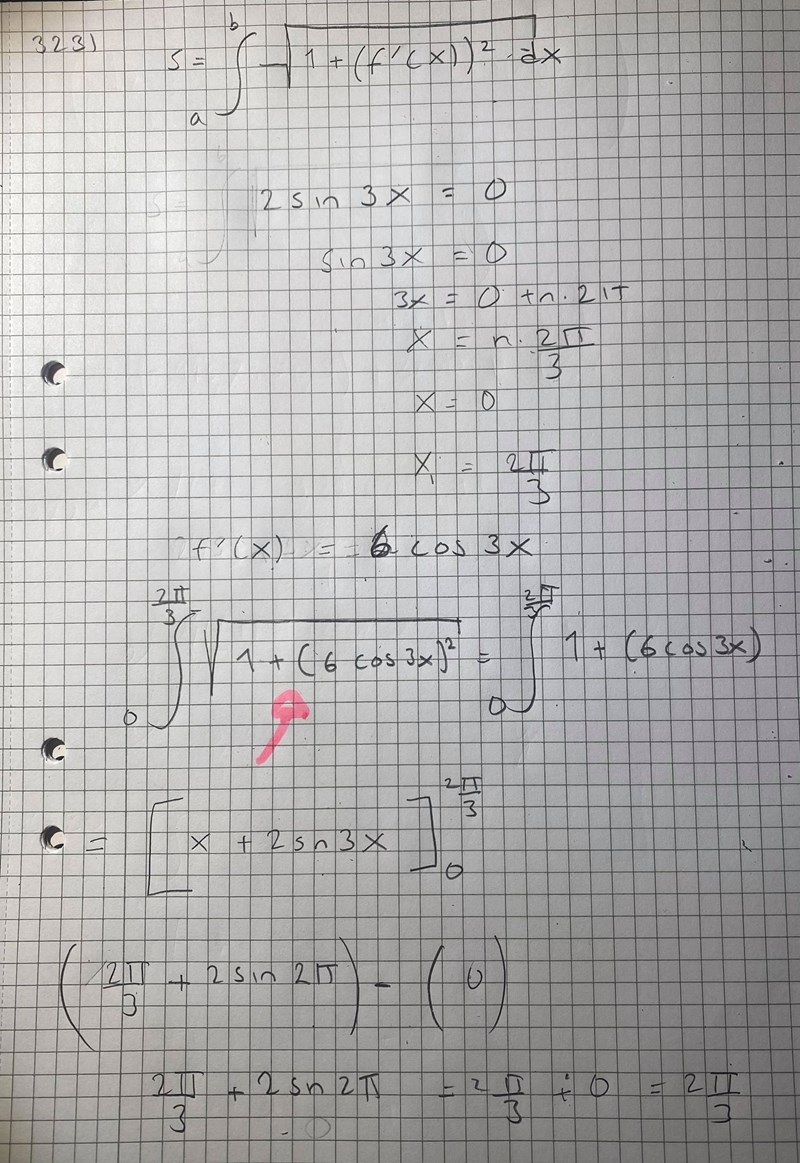 3231)
S = ∫_a^b √(1 + (f'(x))² · dx
2 sin 3x = 0
sin 3x = 0
3x = 0 + n · 2π
x = n · 2π/3
x = 0
x₁ = 2π/3
f'(x) = 6 cos 3x
∫_0^{2π/3} √(1 + (6 cos 3x)²) = ∫_0^{2π/3} 1 + (6 cos 3x)
= [x + 2 sn 3x]_0^{2π/3}
(2π/3 + 2 sin 2π) - (0)
2π/3 + 2 sn 2π = 2π/3 + 0 = 2π/3